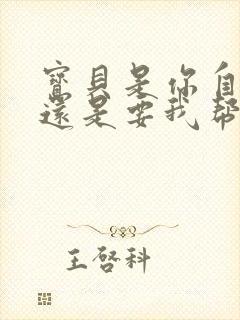 寶貝是你自
還是要我幫
王啓科